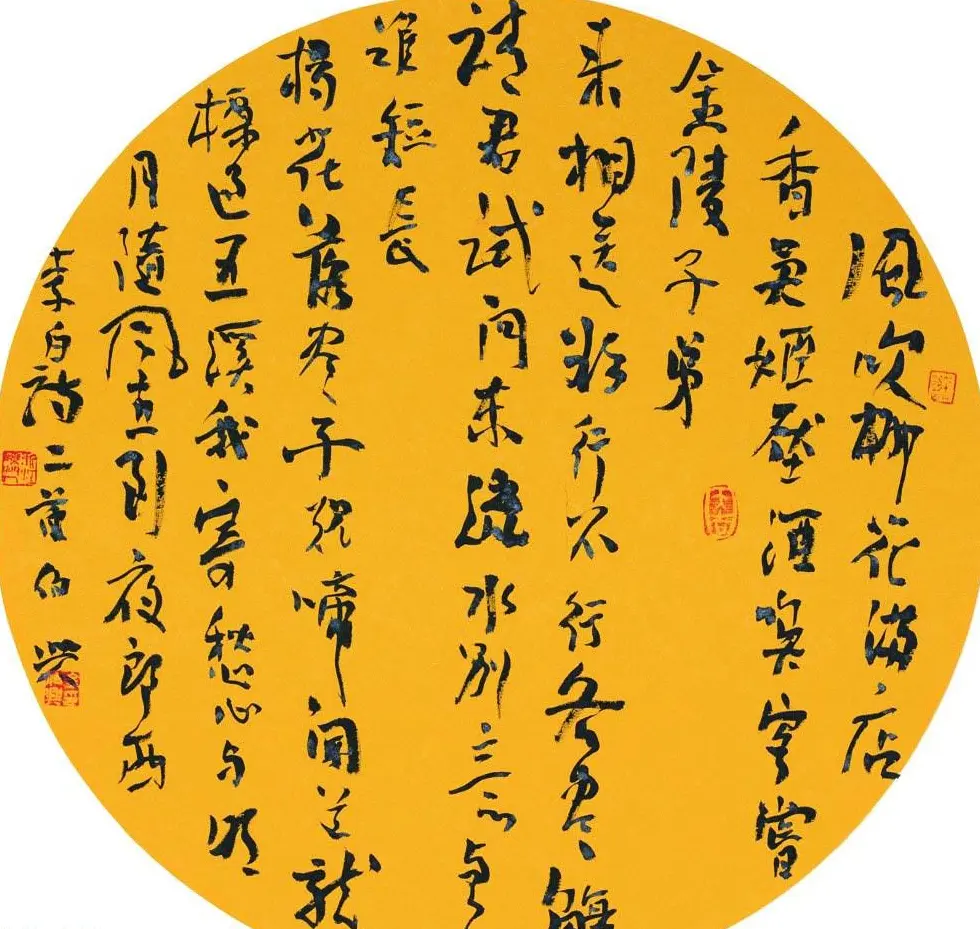 風吹柳花滿店
香吳姬壓酒喚客嘗
金陵子弟
来相送欲行不行各盡觴
請君試问東流水别意與
誰短長
楊花落盡子規啼闻道龍
標過五溪我寄愁心与明
月隨風直到夜郎西
李白詩二